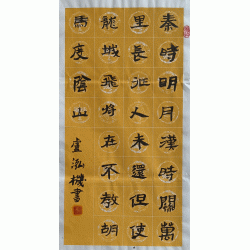 秦時明月漢時關萬
里長征人未還但使
龍城飛將在不教胡
馬度陰山
盧泓機書